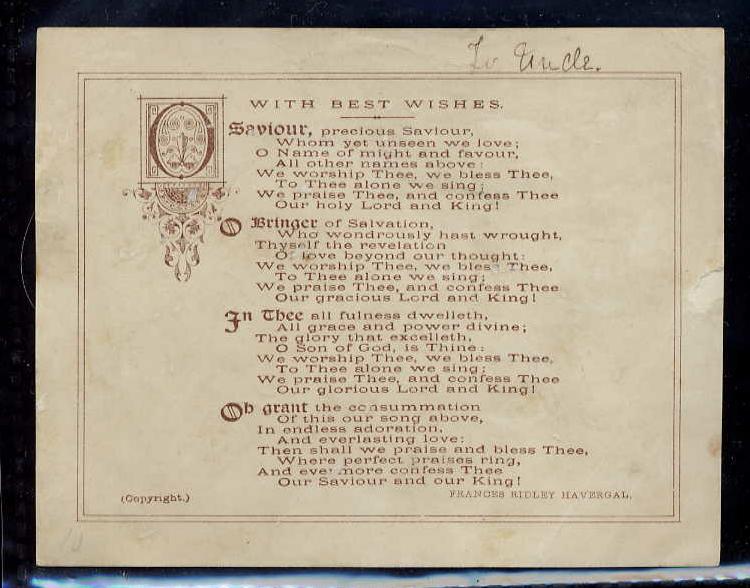 To Uncle.
WITH BEST WISHES.
O Saviour, precious Saviour,
Whom yet unseen we love;
O Name of might and favour,
All other names above:
We worship Thee, we bless Thee,
To Thee alone we sing;
We praise Thee, and confess Thee
Our holy Lord and King!
O Bringer of Salvation,
Who wondrously hast wrought,
Thyself the revelation
Of love beyond our thought:
We worship Thee, we bless Thee,
To Thee alone we sing;
We praise Thee, and confess Thee
Our gracious Lord and King!
In Thee all fulness dwelleth,
All grace and power divine;
The glory that excelleth,
O Son of God, is Thine:
We worship Thee, we bless Thee,
To Thee alone we sing;
We praise Thee, and confess Thee
Our glorious Lord and King!
Oh grant the consummation
Of this our song above,
In endless adoration,
And everlasting love:
Then shall we praise and bless Thee,
Where perfect praises ring,
And evermore confess Thee
Our Saviour and our King!
(Copyright.)
FRANCES RIDLEY HAVERGAL.